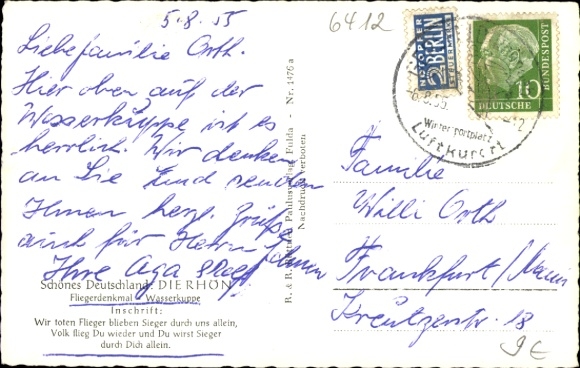 5.8.55
6412
Liebe Familie Orth.
Hier oben auf der
Wasserkuppe ist es
herrlich. Wir denken
an Sie und senden
Ihnen herzl. Grüße
auch für Herrn
Ihre Aga
Schönes Deutschland: DIE RHÖN
Fliegerdenkmal Wasserkuppe
Inschrift:
Wir toten Flieger blieben Sieger durch uns allein,
Volk flieg Du wieder und Du wirst Sieger
durch Dich allein.
Nr. 1476 a
Nachdruck verboten
NOTOPFER
2 BERLIN
STEUERMARKE
10
DEUTSCHE
BUNDESPOST
-6.8.55
Wintersportplatz
Luftkurort
Familie
Willi Orth
Frankfurt/Main
Kreutzerstr. 18
9€